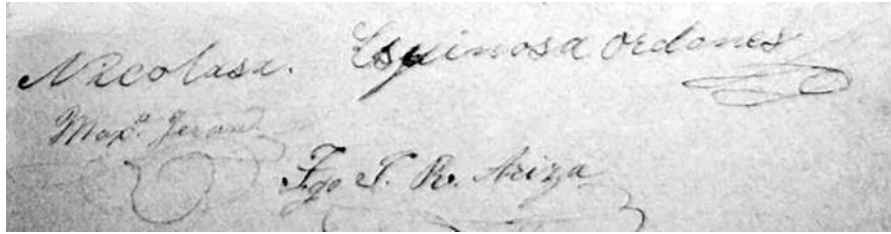 Nicolasa. Espinosa Ordones
Maxº. Jeran
Fgo J. R. Ariza